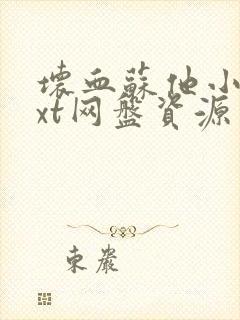 壞血蘇他小
xt网盤資源
東巖